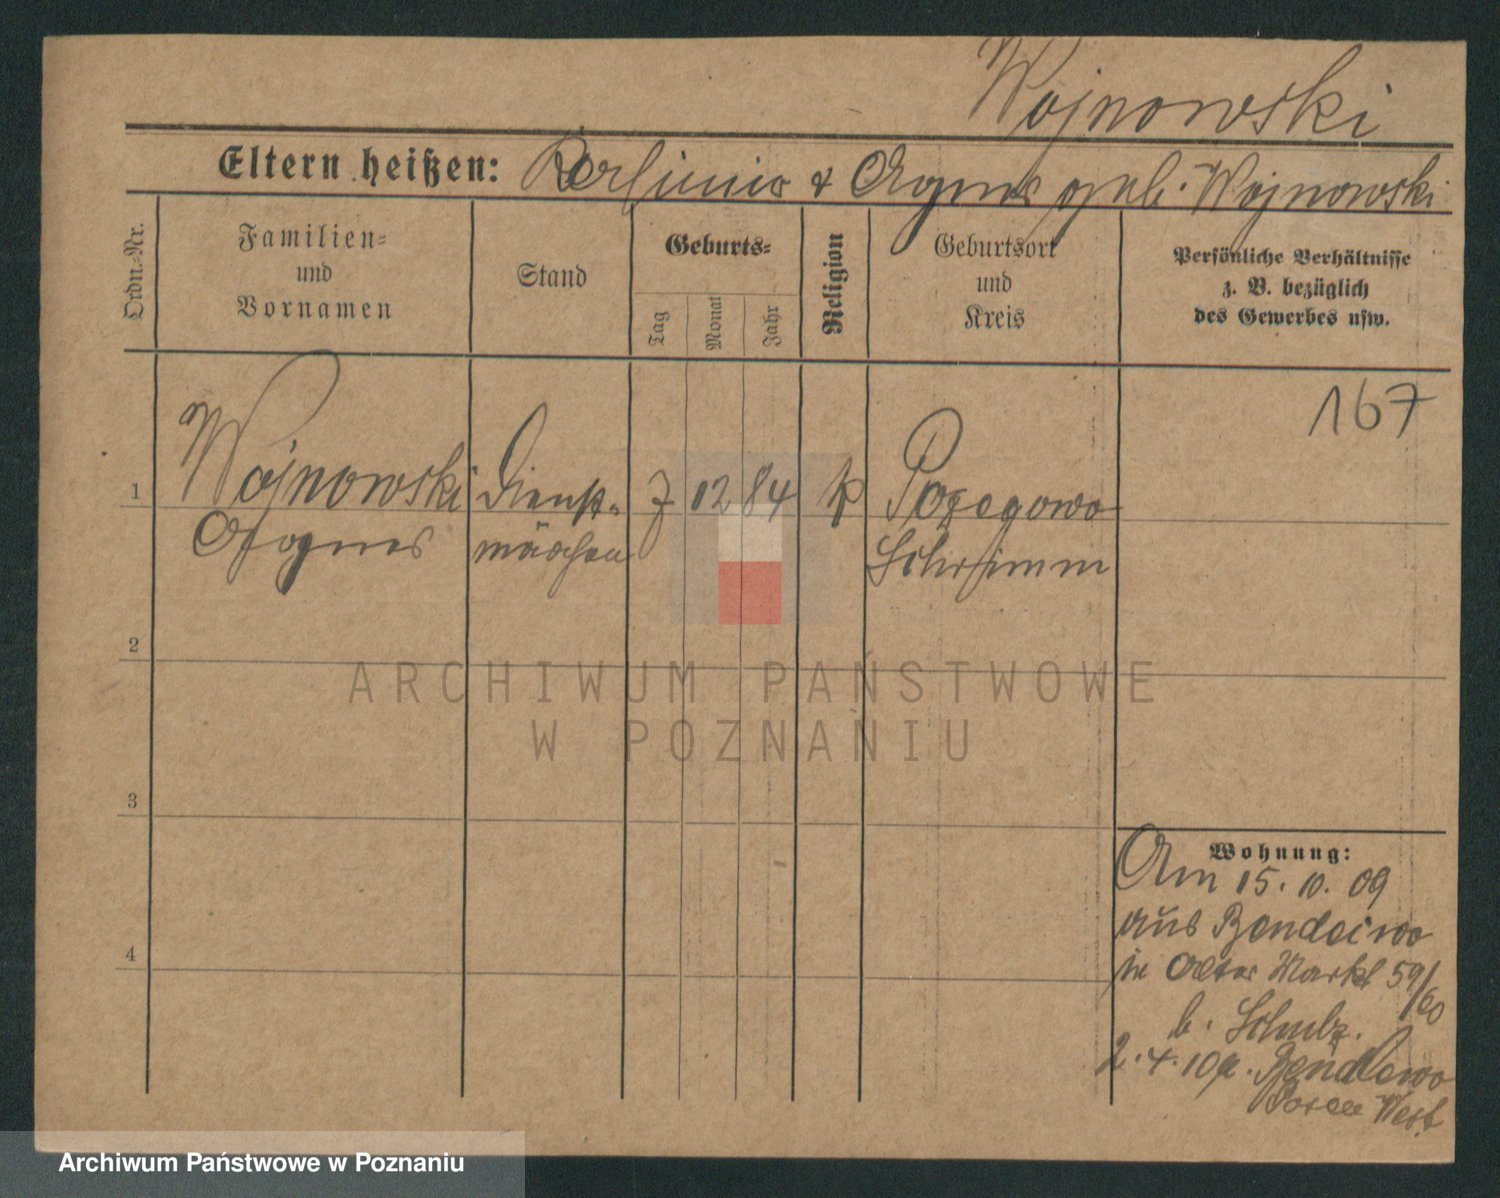 Wojnowski
Eltern heißen: & Agnes geb. Wojnowski
Ordn.-Nr.
Familien-
und
Vornamen
Stand
Geburts-
Tag
Monat
Jahr
Religion
Geburtsort
und
Kreis
Persönliche Verhältnisse
z. B. bezüglich
des Gewerbes usw.
167
1 Wojnowski Dienst- 7 12 84 k Pozegowo
Agnes mädchen Schrimm
2
3
4
Wohnung:
Am 15. 10. 09
aus Bendlewo
in Alter Markt 59/60
b. Schulz.
2. 4. 10 Bendlewo
Posen West
ARCHIWUM PAŃSTWOWE
W POZNANIU
Archiwum Państwowe w Poznaniu